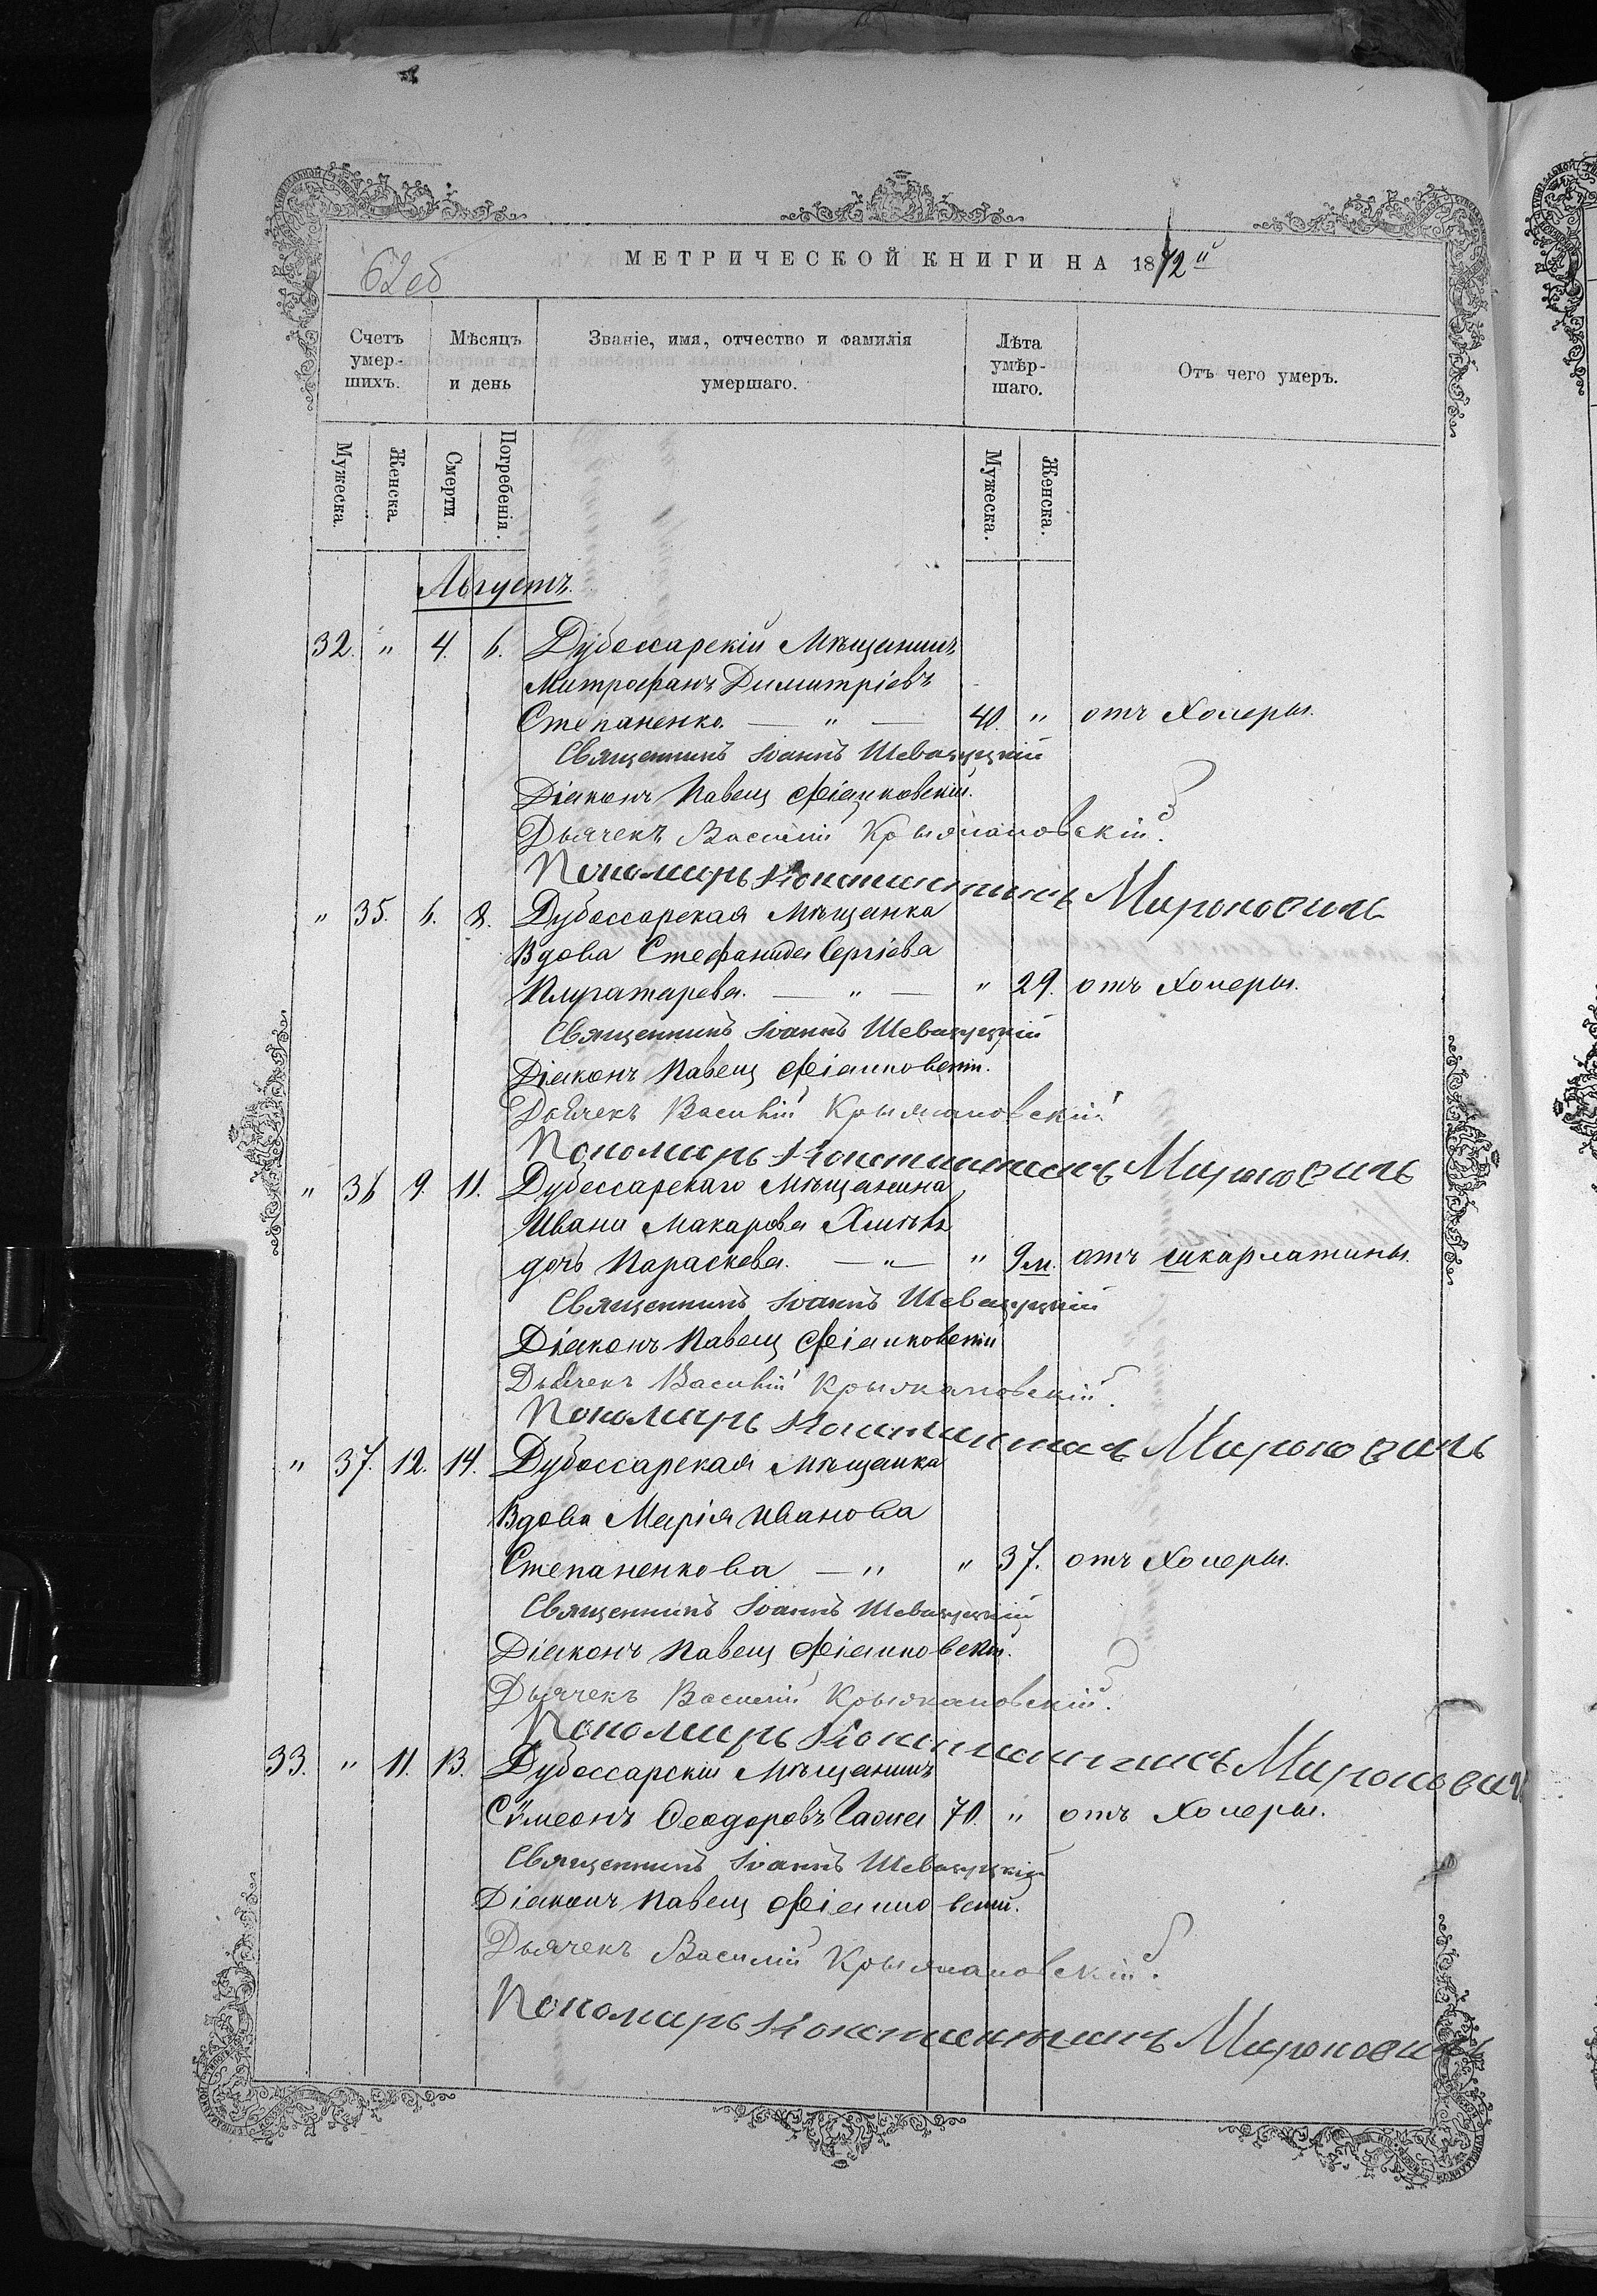 МЕТРИЧЕСКОЙ КНИГИ НА 1872й
62об
Счетъ умер-шихъ.
Мѣсяцъ и день
Званіе, имя, отчество и фамилія умершаго.
Лѣта умѣр-шаго.
Отъ чего умеръ.
Мужеска.
Женска.
Смерти.
Погребенія.
Мужеска.
Женска.
Августъ.
32. " 4. 6. Дубоссарскій Мѣщанинъ
Митрофанъ Димитріевъ
Степаненко. — " — 40. " отъ Холеры.
Священникъ Іоаннъ
Діаконъ Павелъ
Дьячекъ Василій Крыжановскій.
Пономарь Константинъ Мироновичъ
" 35. 6. 8. Дубоссарская Мѣщанка
Вдова Стефанида Сергіева
Плугатарева. — " — " 29. отъ Холеры.
Священникъ Іоаннъ
Діаконъ Павелъ
Дьячекъ Василій Крыжановскій
Пономарь Константинъ Мироновичъ
" 36 9. 11. Дубессарскаго Мѣщанина
Ивана Макарова
дочь Параскева. — " — " 9м. отъ шкарлатины.
Священникъ Іоаннъ
Діаконъ Павелъ
Дьячекъ Василій Крыжановскій.
Пономарь Константинъ Мироновичъ
" 37. 12. 14. Дубоссарская Мѣщанка
Вдова Марія Иванова
Степаненкова — " " 37. отъ Холеры.
Священникъ Іоаннъ
Діаконъ Павелъ
Дьячекъ Василій Крыжановскій.
Пономарь Константинъ Мироновичъ
33. " 11. 13. Дубоссарскій Мѣщанинъ
Сѵмеонъ Ѳеодоровъ 70. " отъ Холеры.
Священникъ Іоаннъ
Діаконъ Павелъ
Дьячекъ Василій Крыжановскій.
Пономарь Константинъ Мироновичъ